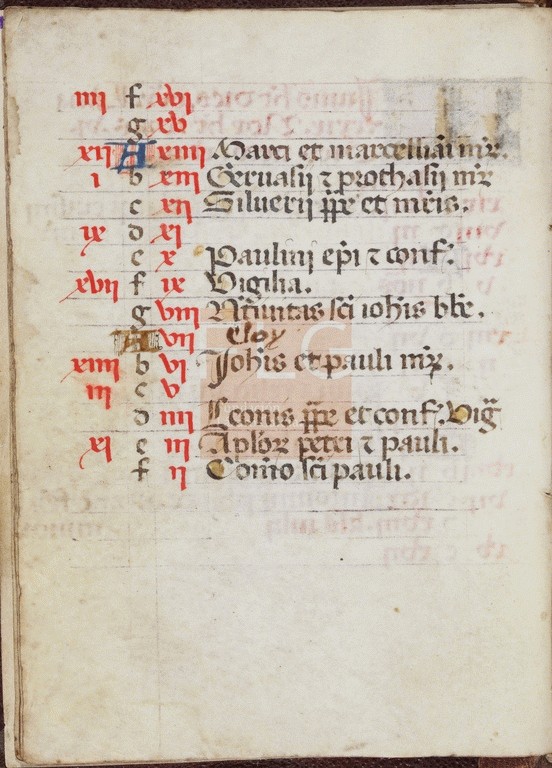 iiij f xvj
g xv
xij A xiiij Marci et marcelliani mr̄.
j b xiij Geruasij ⁊ prothasij mr̄
c xij Siluerij pp̄e et mr̄is.
ix d xj
e x Paulini ep̄i ⁊ conf.
xvij f ix Vigilia.
g viij Natiuitas sc̄i ioh̄is bb̄e.
A vij Eloy
xiiij b vj Joh̄is et pauli mr̄.
iij c v
d iiij Leonis pp̄e et conf. Viḡ
xj e iij Ap̄lorꝝ petri ⁊ pauli.
f ij Com̄o sc̄i pauli.